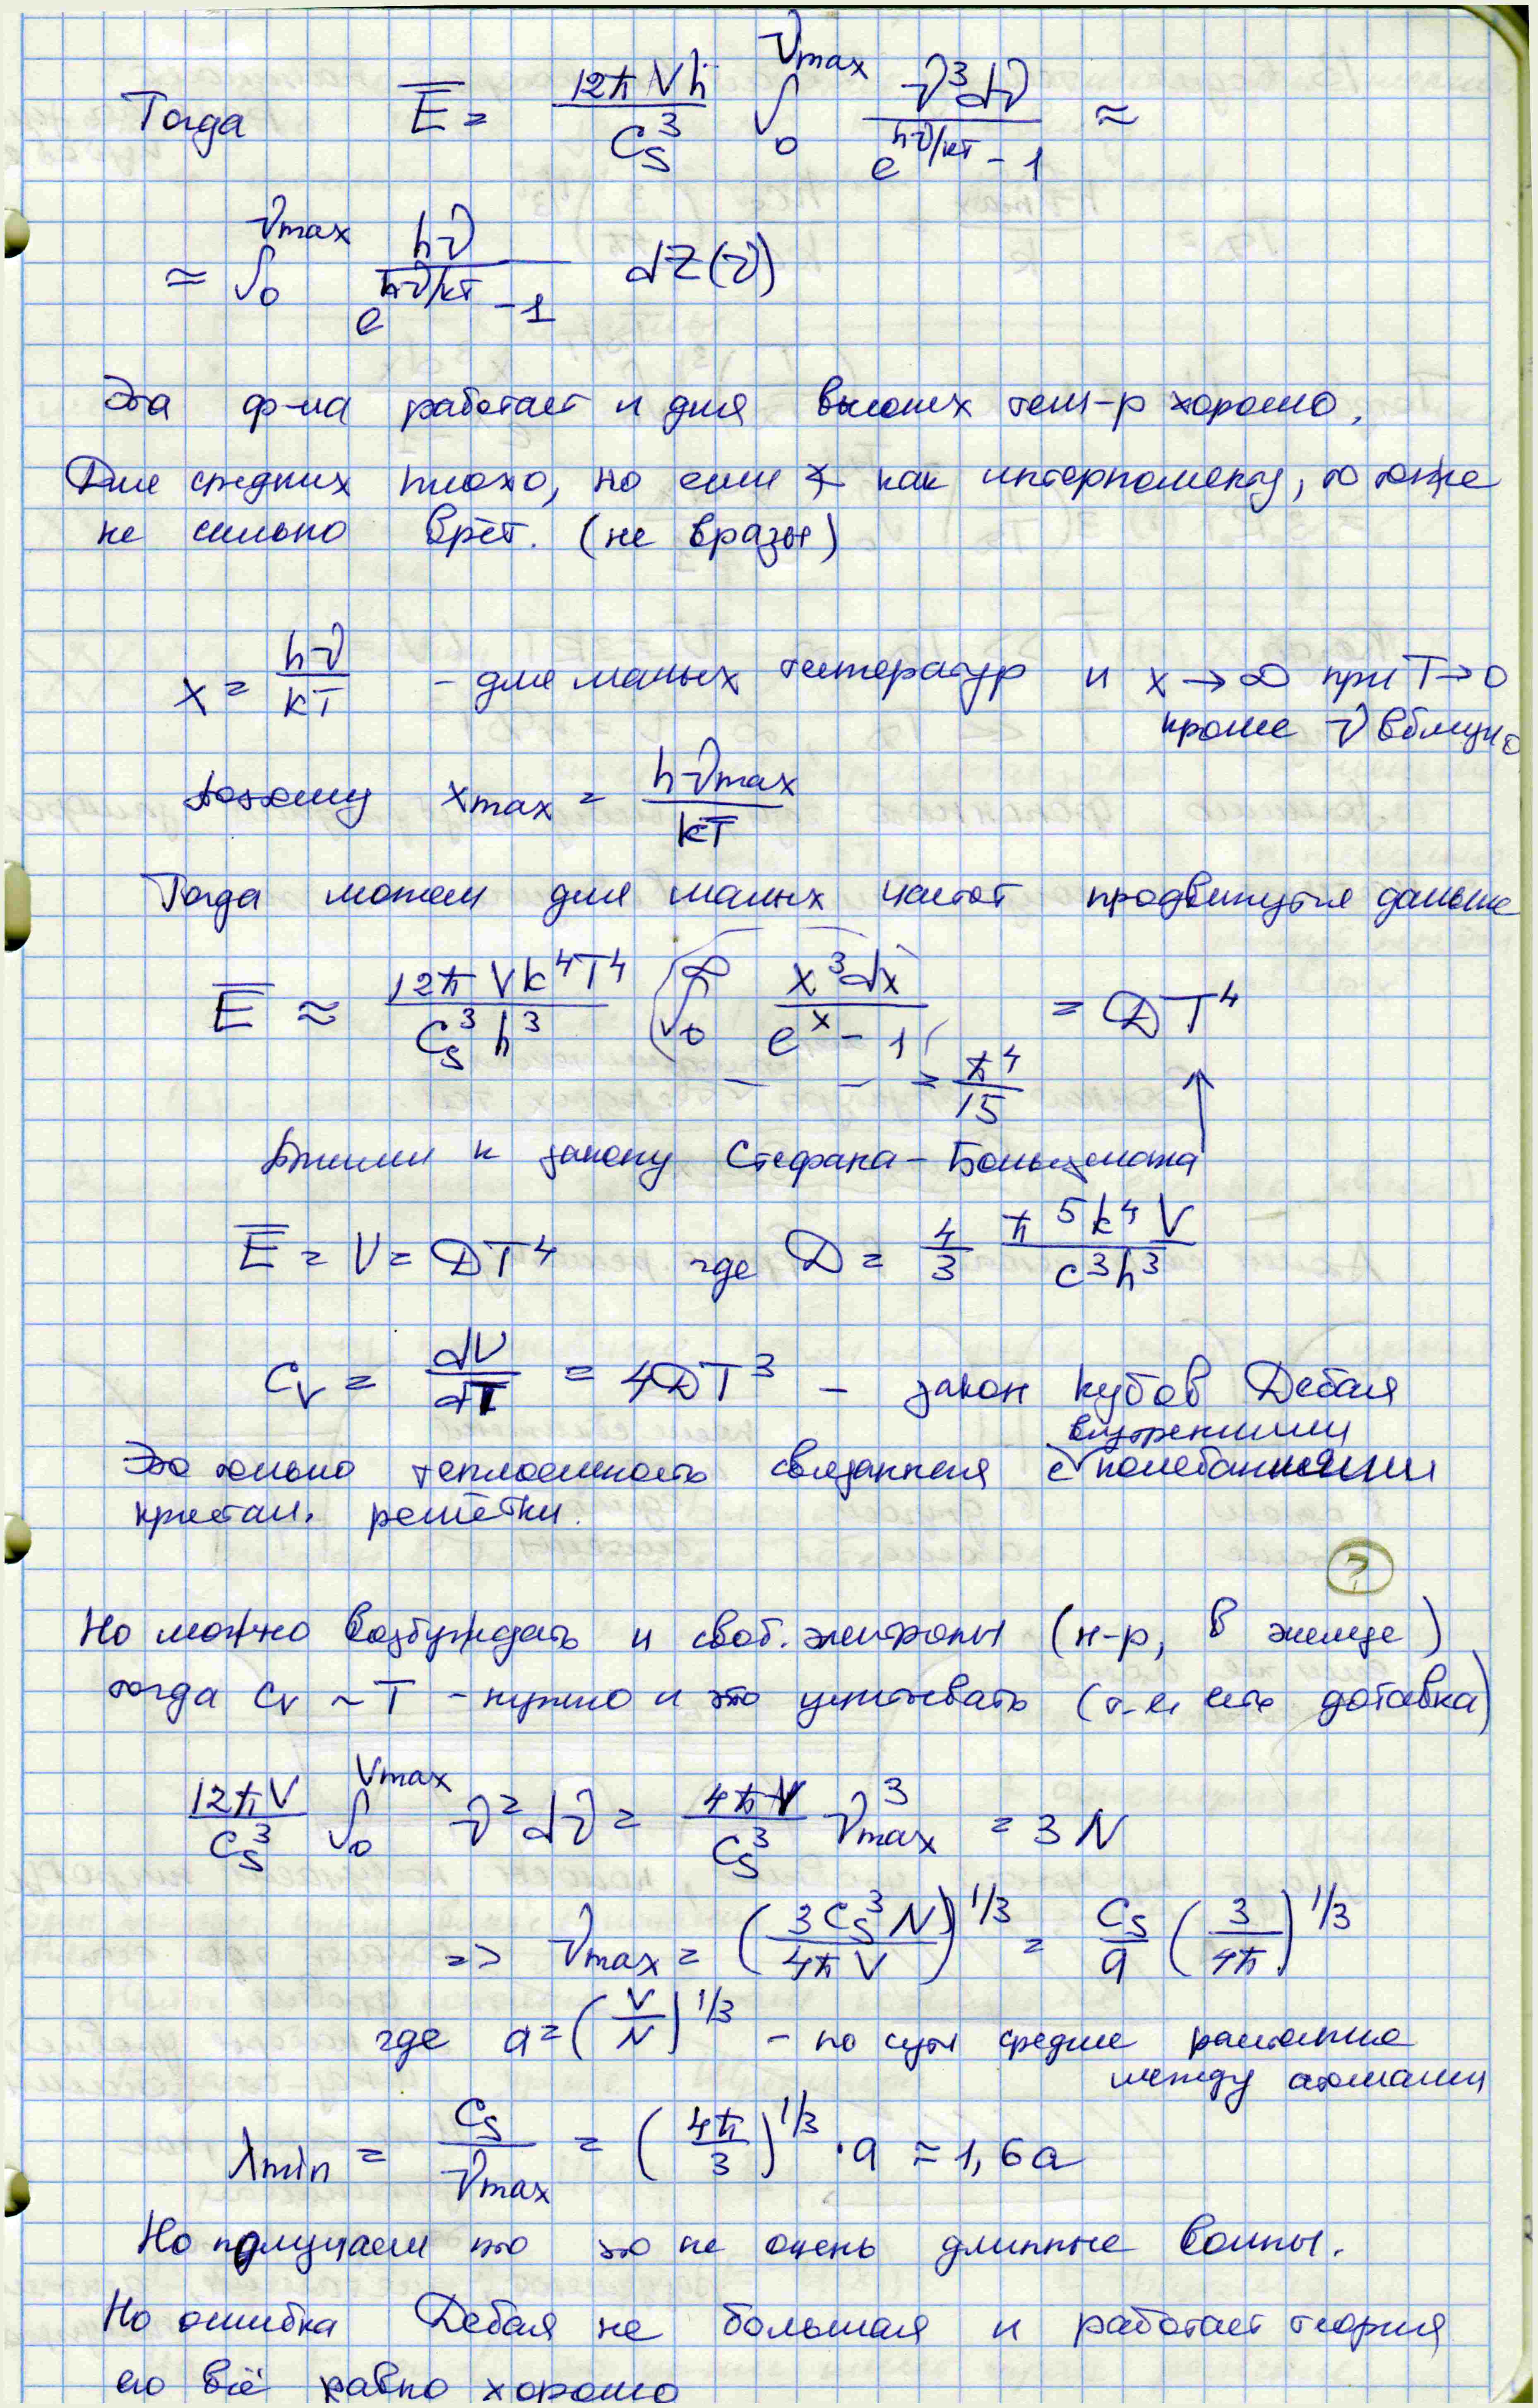 Тогда E̅ = 12π Vh / C_S^3 ∫_0^{ν_max} ν^3 dν / (e^{hν/kT} - 1) ≈
≈ ∫_0^{ν_max} hν / (e^{hν/kT} - 1) dZ(ν)
Эта ф-ла работает и для высоких тем-р хорошо.
Для средних плохо, но если как интерполяцию, то тоже
не сильно врёт. (не вразы)
x = hν / kT - для малых температур и x → ∞ при T → 0
кроме ν вблизи 0
поэтому x_max = hν_max / kT
Тогда можем для малых частот продвинутся дальше
E̅ ≈ 12π V k^4 T^4 / (C_S^3 h^3) (∫_0^∞ x^3 dx / (e^x - 1)) = D T^4
= π^4 / 15
Близки к закону Стефана - Больцмана
E̅ = U = DT^4 где D = 4/3 π^5 k^4 V / (c^3 h^3)
C_V = dU / dT = 4DT^3 - закон кубов Дебая
внутренними
Это только теплоемкость связанная с колебаниями
кристал. решётки.
?
Но можно возбуждать и своб. электроны (н-р, в железе)
тогда C_V ~ T - нужно и это учитывать (т.е. есть добавка)
12πV / C_S^3 ∫_0^{ν_max} ν^2 dν = 4πV / C_S^3 ν_max^3 = 3N
=> ν_max = (3 C_S^3 N / 4π V)^{1/3} = C_S / a (3 / 4π)^{1/3}
где a = (V / N)^{1/3} - по сути средние растояние
между атомами
λ_min = C_S / ν_max = (4π / 3)^{1/3} · a ≈ 1,6a
Но получаем что это не очень длинные волны.
Но ошибка Дебая не большая и работает теория
его всё равно хорошо